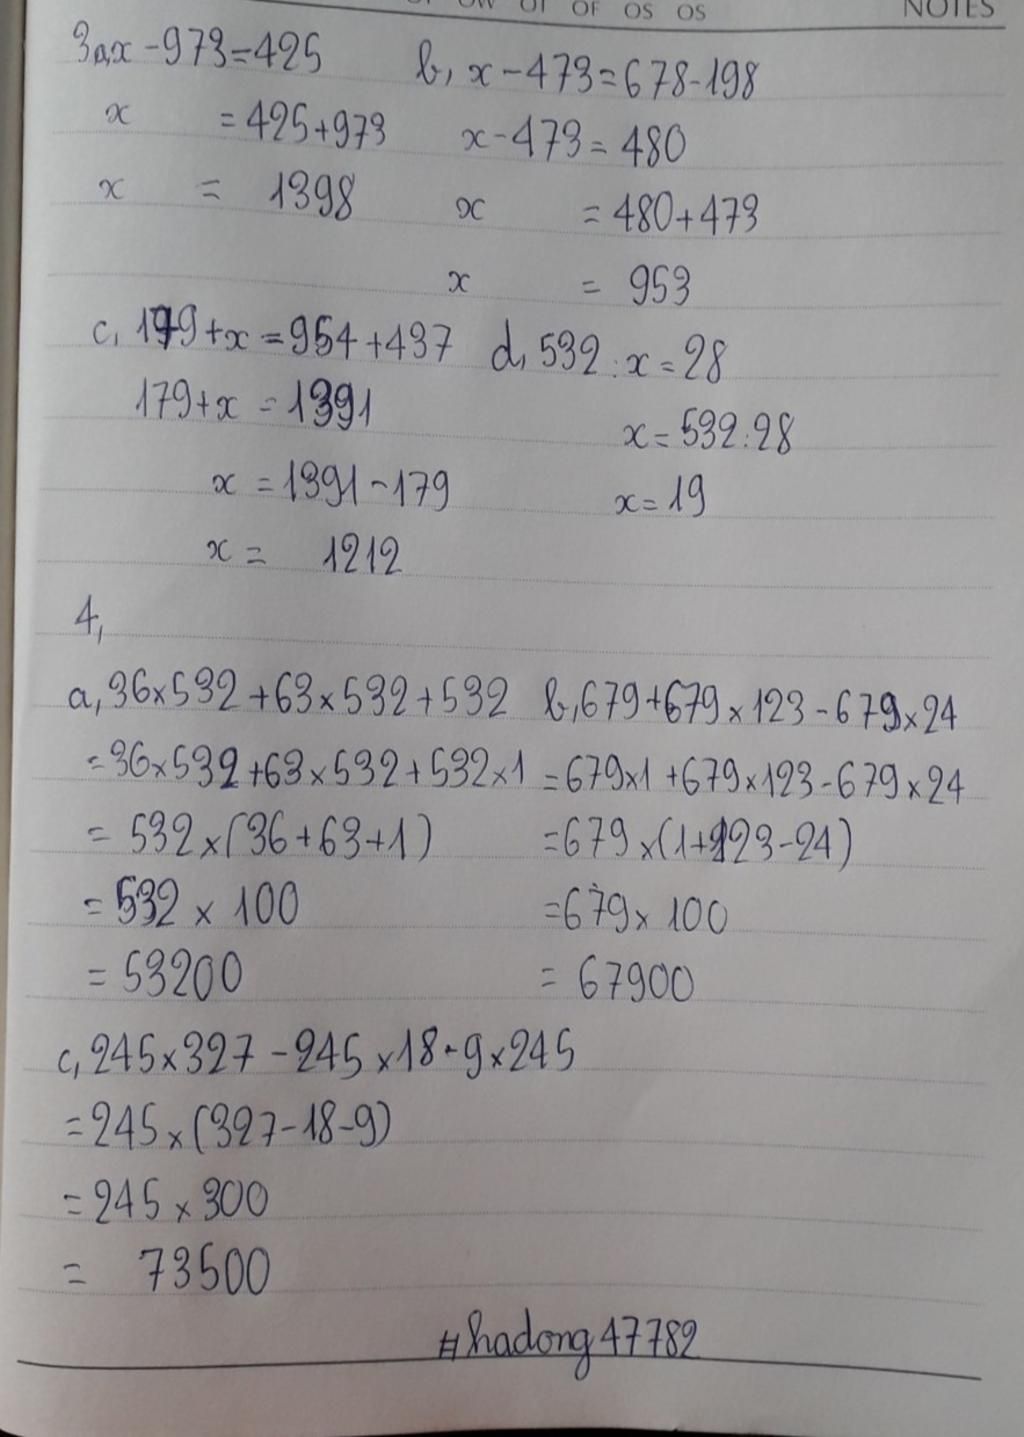 NOTES
3a, x - 973 = 425
x = 425 + 973
x = 1398
b, x - 473 = 678 - 198
x - 473 = 480
x = 480 + 473
x = 953
c, 179 + x = 954 + 437
179 + x = 1391
x = 1391 - 179
x = 1212
d, 532 : x = 28
x = 532 : 28
x = 19
4,
a, 36 × 532 + 63 × 532 + 532
= 36 × 532 + 63 × 532 + 532 × 1
= 532 × (36 + 63 + 1)
= 532 × 100
= 53200
b, 679 + 679 × 123 - 679 × 24
= 679 × 1 + 679 × 123 - 679 × 24
= 679 × (1 + 123 - 24)
= 679 × 100
= 67900
c, 245 × 327 - 245 × 18 - 9 × 245
= 245 × (327 - 18 - 9)
= 245 × 300
= 73500
#hadong47782